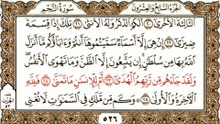 الجزء السابع والعشرون سورة النجم
ٱلثَّالِثَةَ ٱلْأُخْرَىٰ ٢٠ أَلَكُمُ ٱلذَّكَرُ وَلَهُ ٱلْأُنثَىٰ ٢١ تِلْكَ إِذًا قِسْمَةٌ
ضِيزَىٰٓ ٢٢ إِنْ هِىَ إِلَّآ أَسْمَآءٌ سَمَّيْتُمُوهَآ أَنتُمْ وَءَابَآؤُكُم مَّآ أَنزَلَ
ٱللَّهُ بِهَا مِن سُلْطَٰنٍ إِن يَتَّبِعُونَ إِلَّا ٱلظَّنَّ وَمَا تَهْوَى ٱلْأَنفُسُ
وَلَقَدْ جَآءَهُم مِّن رَّبِّهِمُ ٱلْهُدَىٰٓ ٢٣ أَمْ لِلْإِنسَٰنِ مَا تَمَنَّىٰ ٢٤ فَلِلَّهِ
ٱلْءَاخِرَةُ وَٱلْأُولَىٰ ٢٥ وَكَم مِّن مَّلَكٍ فِى ٱلسَّمَٰوَٰتِ لَا تُغْنِى
٥٢٦